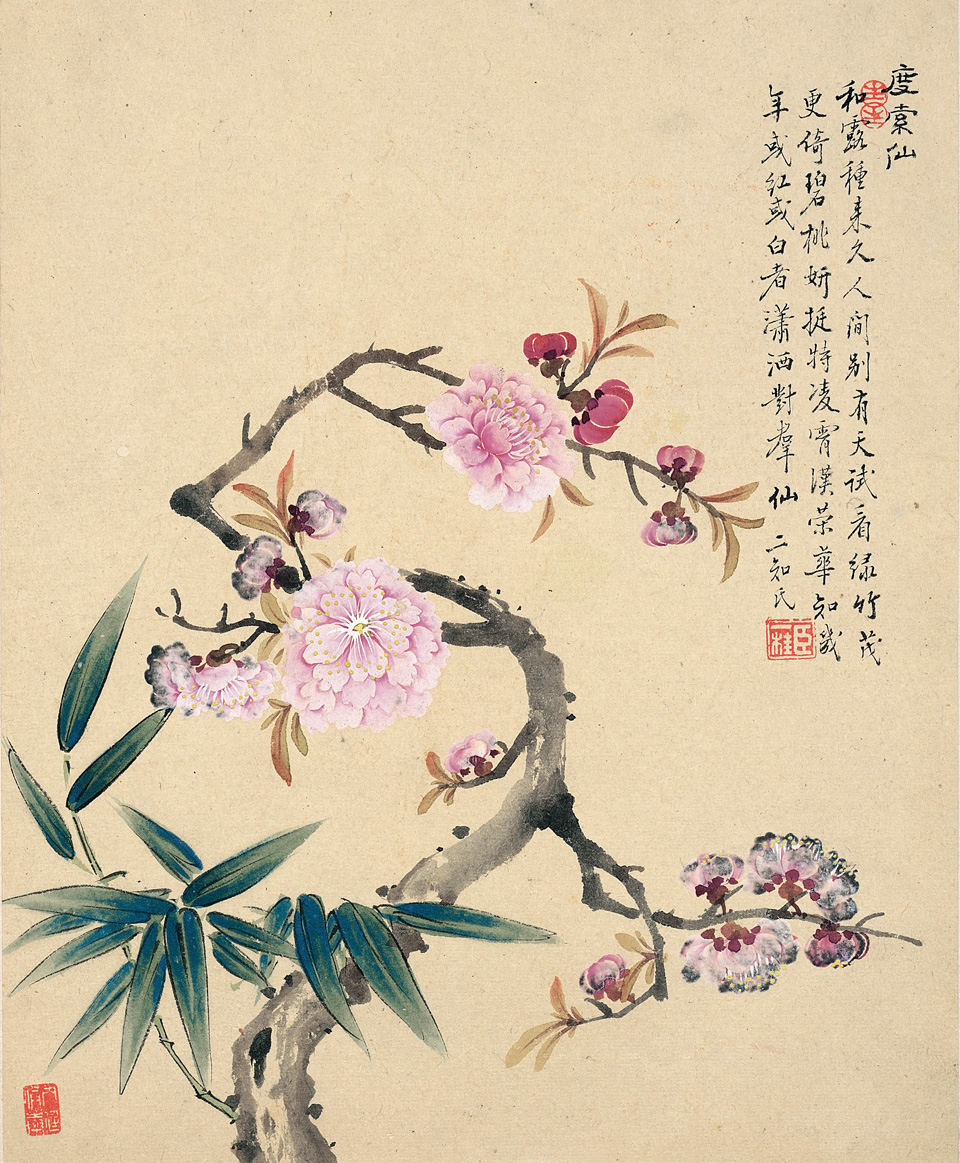 度索仙
和露種來久人間別有天試看绿竹茂
更倚碧桃妍挺特凌霄漢荣華知幾
年或红或白者瀟洒對羣仙 二知氏
臣桂